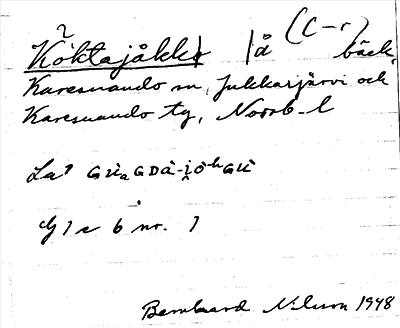 Köktajåkkå | å (C-r) bäck,
Karesuando sn, Jukkasjärvi och
Karesuando tg, Norrb. l
Lap
G 1 c 6 nr. 1
Bernhard Nilsson 1948